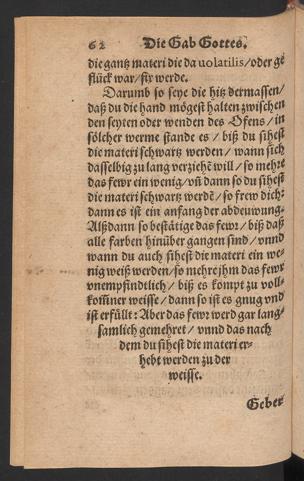 62 Die Gab Gottes.
die gantz materi die da uolatilis/oder ge
flück war/fix werde.
Darumb so seye die hitz dermassen/
daß du die hand mögest halten zwischen
den seyten oder wenden des Ofens/in
sölcher werme stande es/biß du sihest
die materi schwartz werden/wann sich
dasselbig zu lang verziehẽ will/so mehre
das fewr ein wenig/vñ dann so du sihest
die materi schwartz werdẽ/so frew dich:
dann es ist ein anfang der abdeuwung.
Alßdann so bestätige das fewr/biß daß
alle farben hinüber gangen sind/vnnd
wann du auch sihest die materi ein we-
nig weiß werden/so mehre jhm das fewr
vnempfindtlich/biß es kompt zu voll-
kom̃ner weisse/dann so ist es gnug vnd
ist erfüllt: Aber das fewr werd gar lang-
samlich gemehret/vnnd das nach
dem du sihest die materi er-
hebt werden zu der
weisse.
Geber